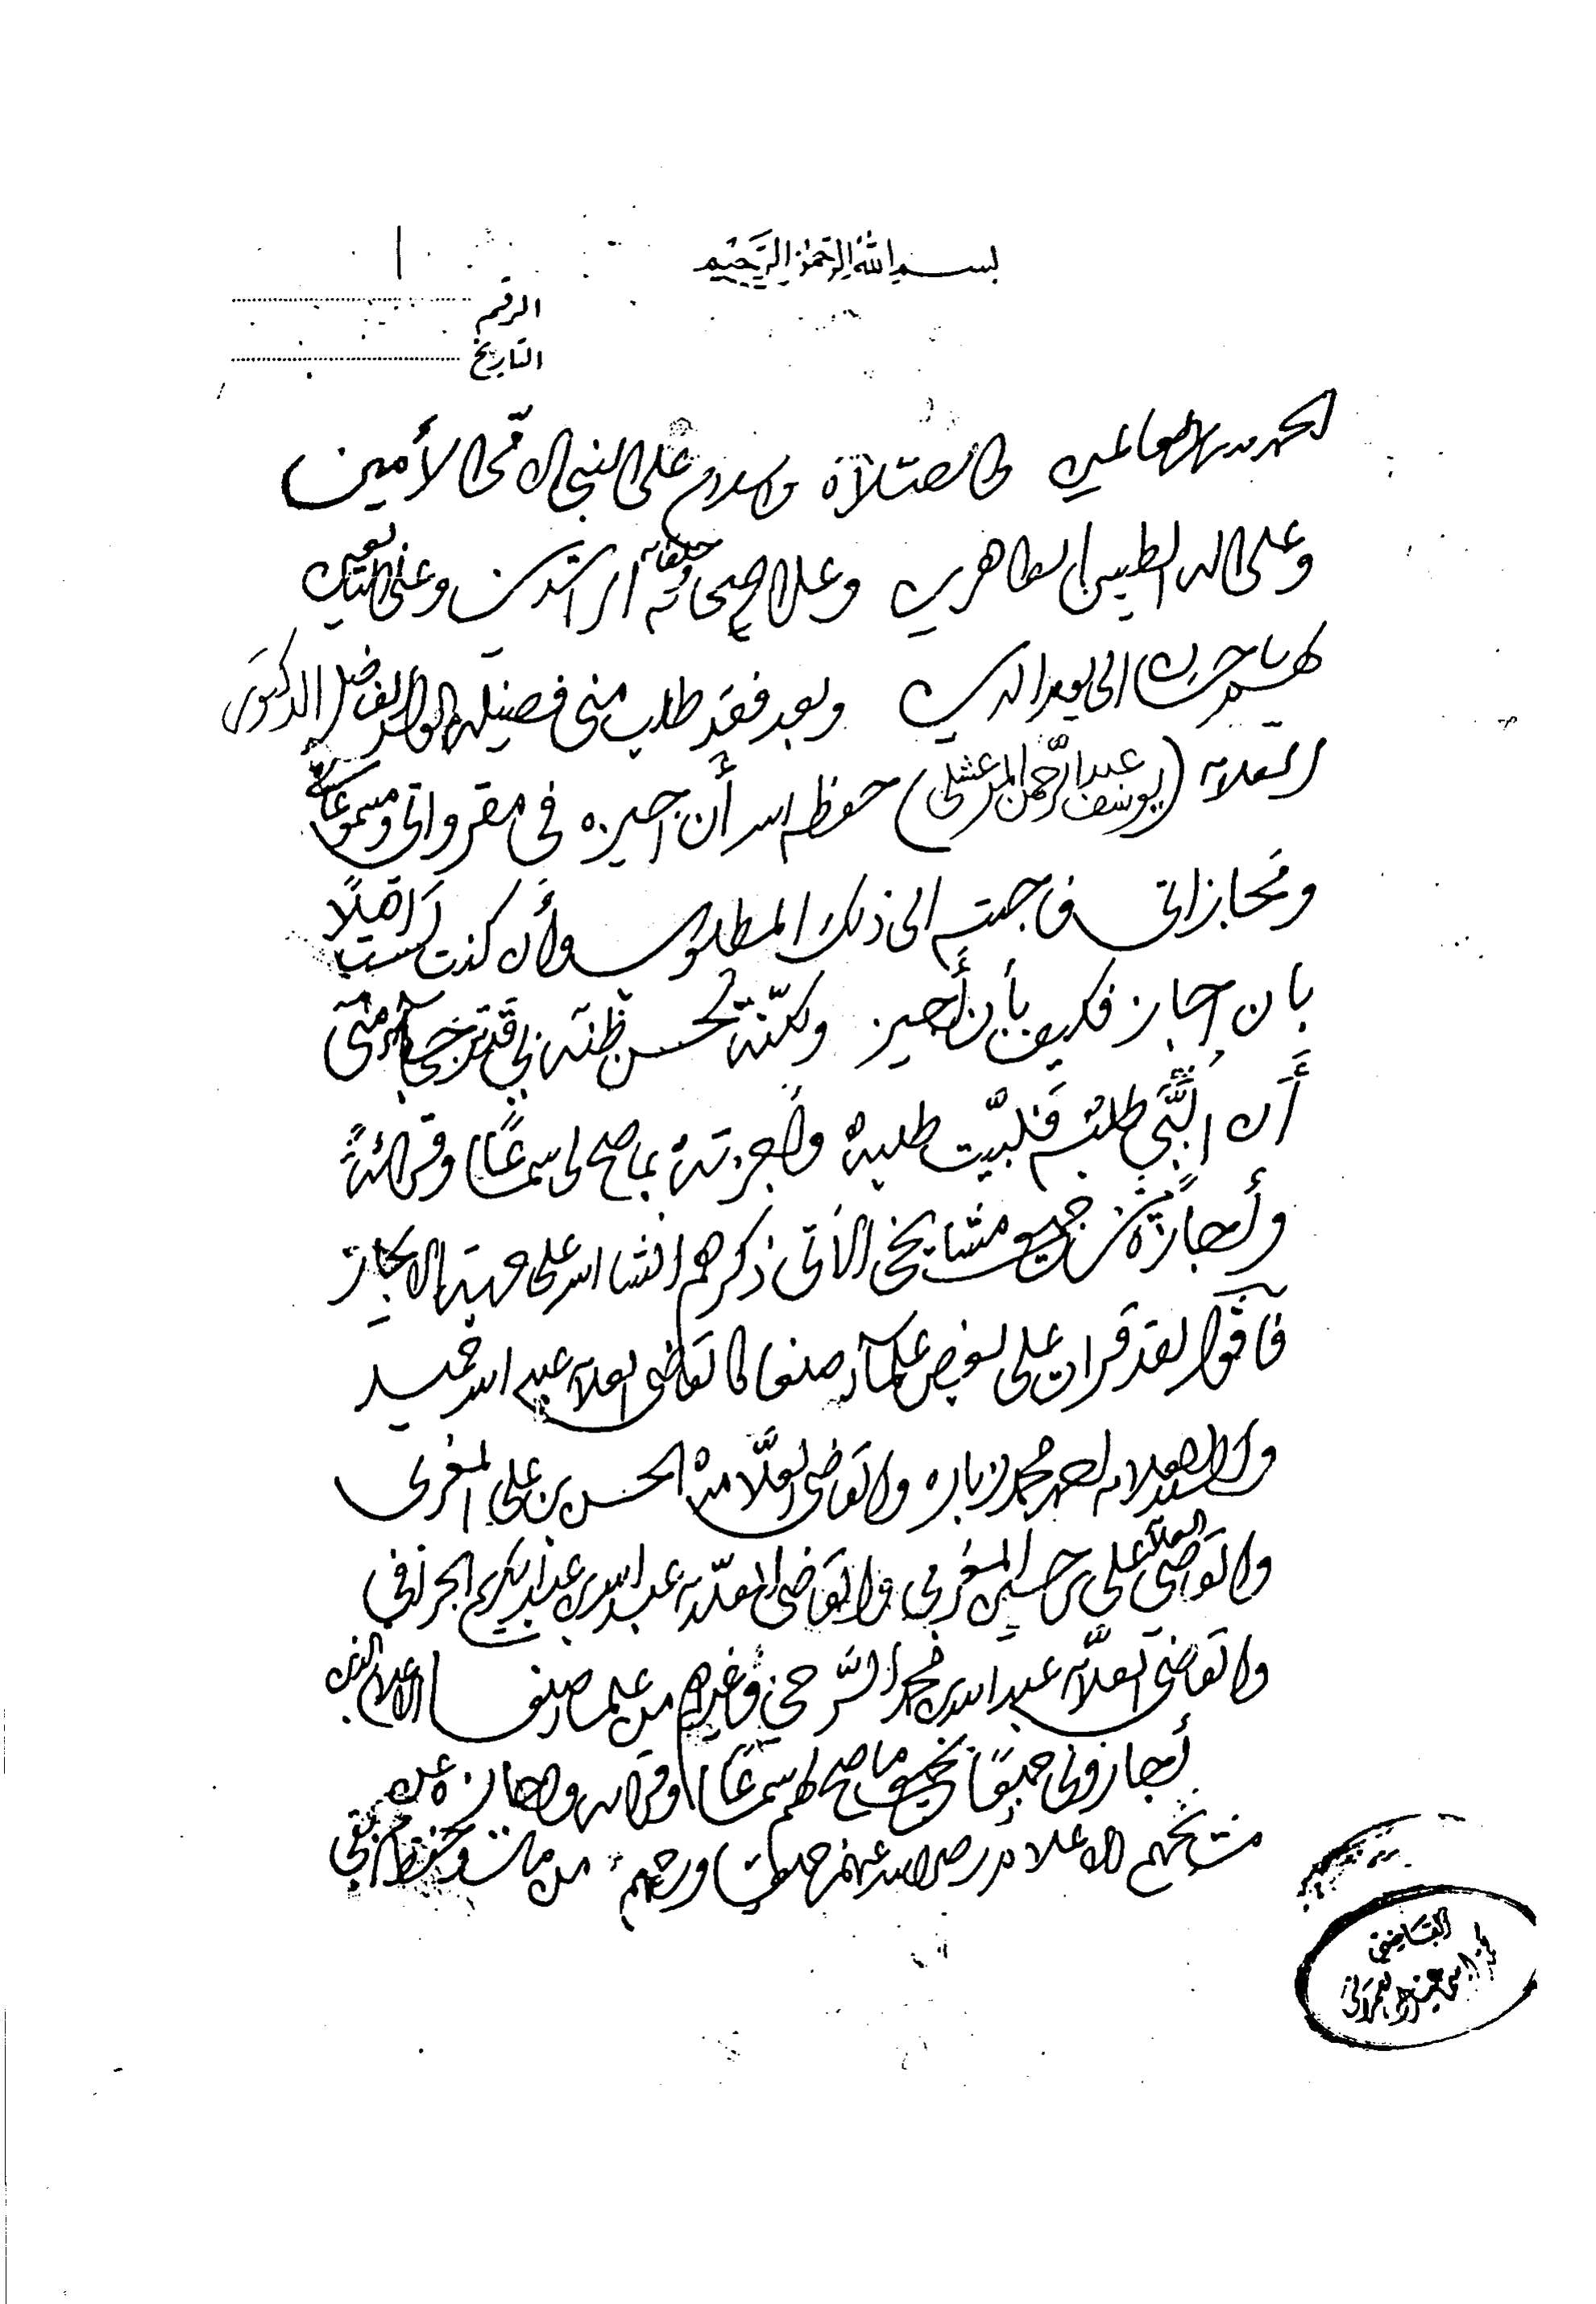 بسم الله الرحمن الرحيم
الرقم
التاريخ
الحمد لله رب العالمين والصلاة والسلام على النبي الأمي الأمين
وعلى اله الطيبين الطاهرين وعلى اصحابه وخلفائه الراشدين وعلى التابعين
لهم باحسان الى يوم الدين وبعد فقد طلب مني فضيلة الفاضل الدكتور
العلامه (يوسف عبدالرحمن المرعشلي) حفظه الله أن اجيزه في مقرواتي ومسموعاتي
ومجازاتي فاجبته الى ذلك المطلوب وأن كنت لست اهلاً
بان اجاز فكيف بأن أجيز ولكنّه لحسن ظنه بي قد ترجى مني
أن اُلَبِّي طلبه فلبيّت طلبه وأجزته بما صح لي سماعًا وقرائةً
وأجازةً من جميع مشايخي الأتي ذكرهم انشا الله على هذه الاجازة
فأقول لقد قرات على بعض علمآء صنعا كالقاضي العلامه عبد الله حميد
والسيد العلامه احمد محمد زباره والقاضي العلّامه الحسن بن علي المغربي
والقاضي العلامه علي بن حسين المغربي والقاضي العلامه عبد الله بن عبد الكريم الجرافي
والقاضي العلّامه عبد الله بن محمد السَّرحي وغيرهم من علما صنعا الاعلام الذين
أجازوني جميعًا بجميع ما صح لهم سماعًا وقراءه واجازة عن
مشايخهم الاعلام رضي الله عنهم جميعا ورحم من مات وحفظ من بقي
القاضي
العمراني